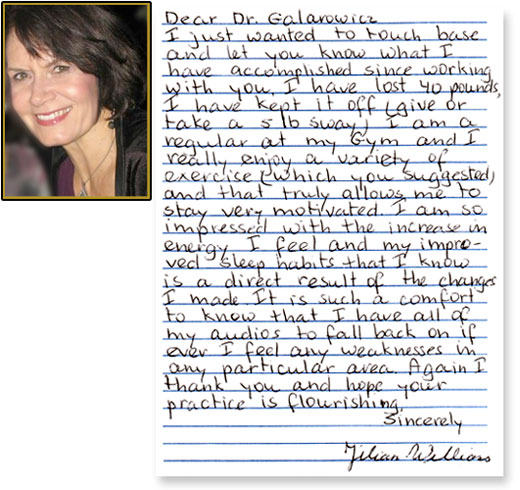 Dear Dr. Galarowicz
I just wanted to touch base
and let you know what I
have accomplished since working
with you. I have lost 40 pounds,
I have kept it off (give or
take a 5 lb sway) I am a
regular at my Gym and I
really enjoy a variety of
exercise (which you suggested)
and that truly allows me to
stay very motivated. I am so
impressed with the increase in
energy I feel and my impro-
ved sleep habits that I know
is a direct result of the changes
I made. It is such a comfort
to know that I have all of
my audios to fall back on if
ever I feel any weaknesses in
any particular area. Again I
thank you and hope your
practice is flourishing.
Sincerely
Jilian Wellians